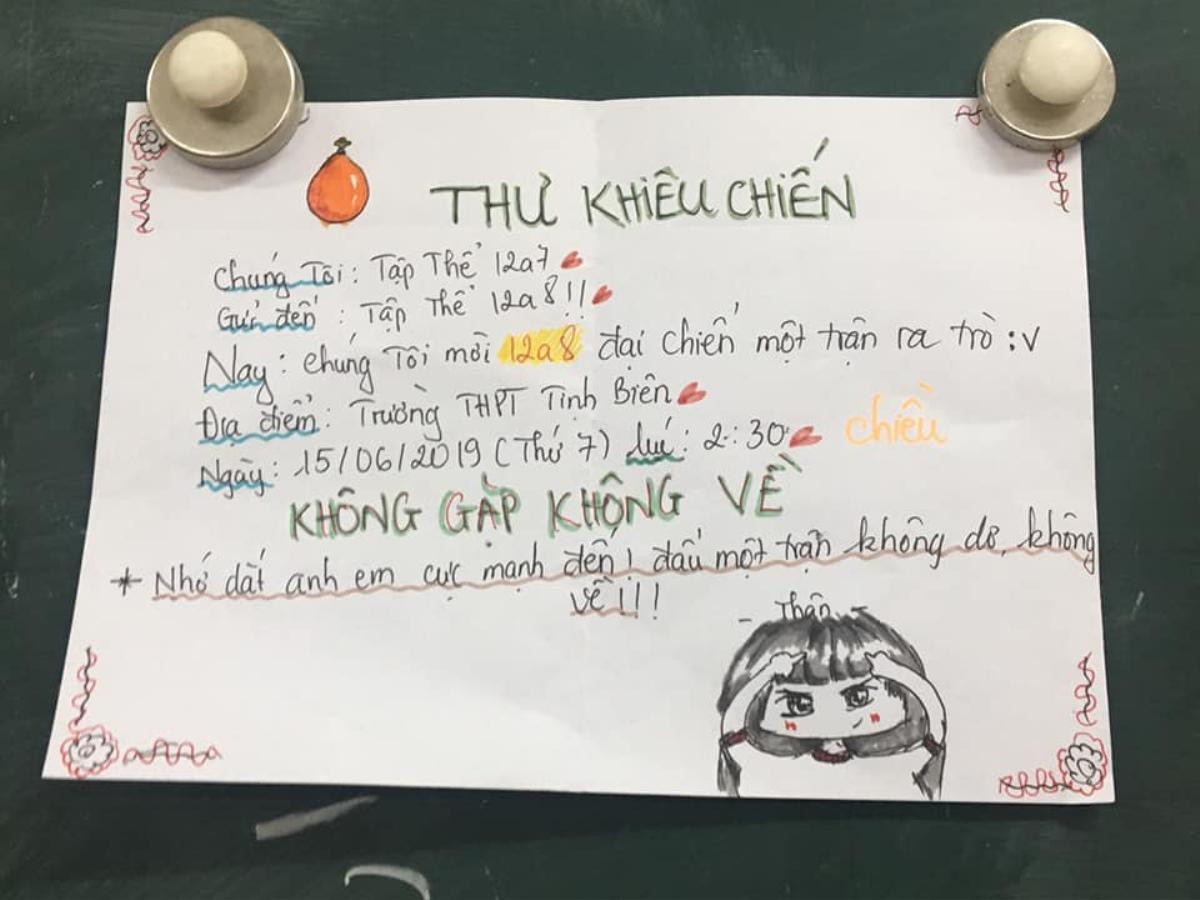 THƯ KHIÊU CHIẾN
Chúng Tôi: Tập Thể 12a7
Gửi đến: Tập Thể 12a8!!
Nay: chúng Tôi mời 12a8 đại chiến một trận ra trò :v
Địa điểm: Trường THPT Tịnh Biên
Ngày: 15/06/2019 (Thứ 7) lúc: 2:30 chiều
KHÔNG GẶP KHÔNG VỀ
* Nhớ dắt anh em cực mạnh đến! đấu một trận không dơ, không
về!!!
- Thân -